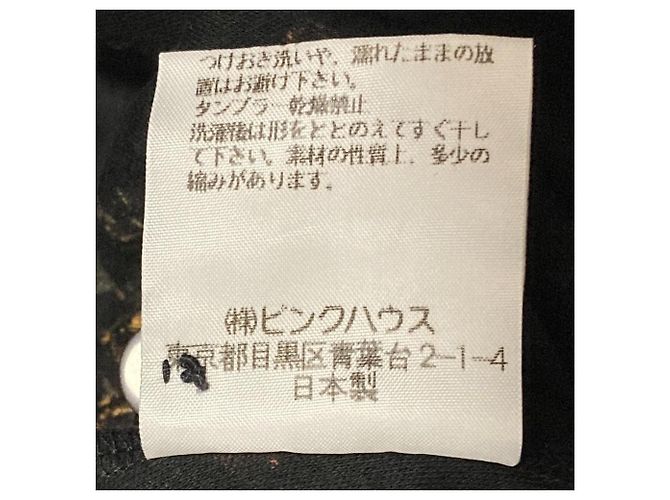 つけおき洗いや、濡れたままの放
置はお避け下さい。
タンブラー乾燥禁止
洗濯後は形をととのえてすぐ干し
て下さい。素材の性質上、多少の
縮みがあります。
㈱ピンクハウス
東京都目黒区青葉台2-1-4
日本製